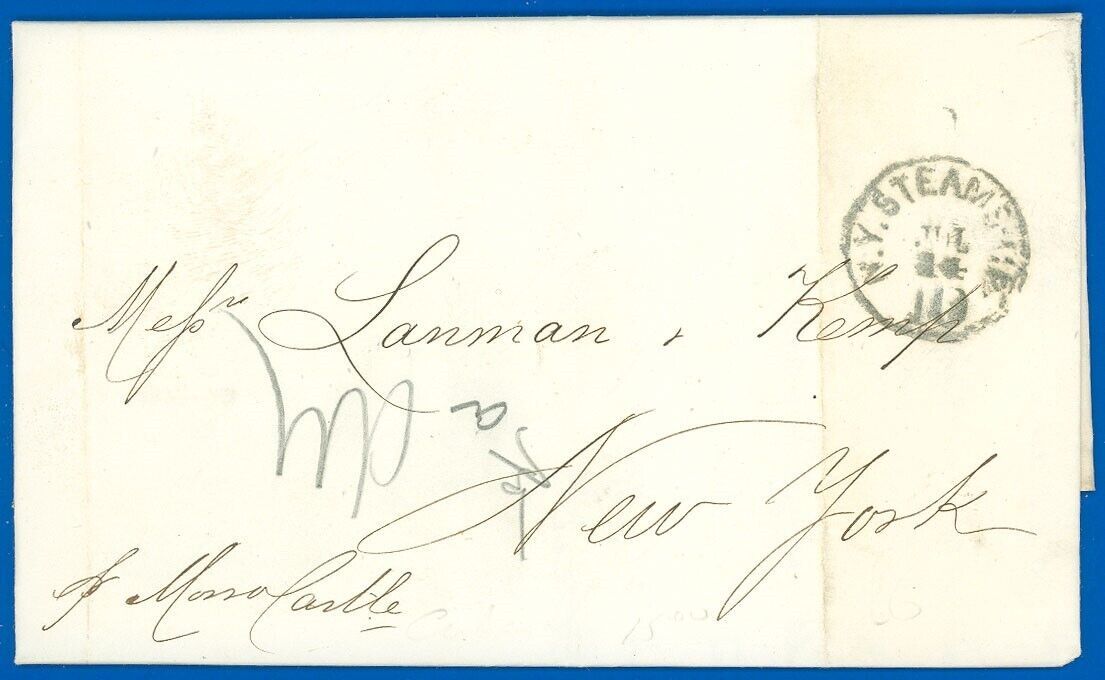 N.Y. STEAMSHIP
JUL
24
10
Mess^rs Lanman & Kemp
New York
p^r Morro Castle